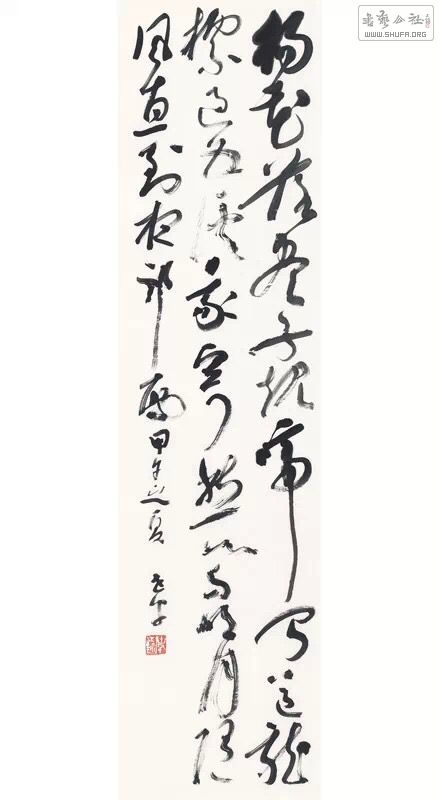 杨花落尽子规啼闻道龙
標過五溪我寄愁心与明月随
风直到夜郎西甲午之夏
书艺公社
WWW.SHUFA.ORG